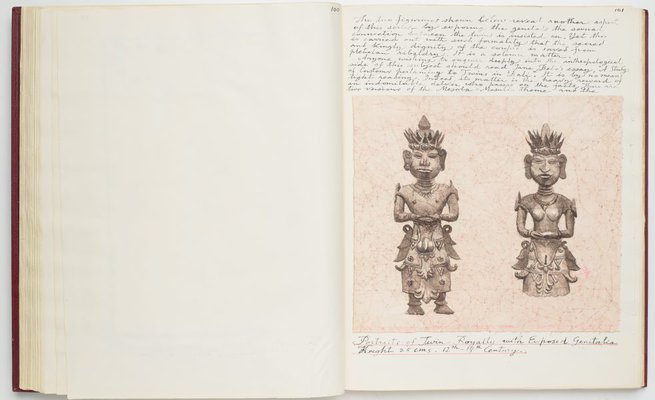 100
101
The two figurines shown below reveal another aspect
of this series by exposing the genitals the sexual
connection between the twins is insisted on. Yet this
is carried out with such formality that the sacred
and kingly dignity of the couple is saved from
plebeian ribaldry. It is a solemn matter.
Anyone wishing to enquire deeply into the anthropological
side of this subject should read Jane Belo's essay, A Study
of Customs pertaining to Twins in Bali. It is by no means
light reading. Indeed its matter is the heavy reward of
an indomitable delver who passes on the facts. There are
two versions of the theme and the
Portraits of Twin Royalty with Exposed Genitalia
Height 25 cms. 12th - 14th Century.